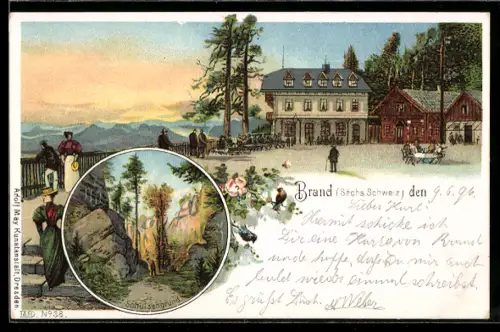 Brand (Sächs. Schweiz) den 9.6.96
Lieber Kurt!
Hiermit schicke ich
Dir eine Karte von Brand
und hoffe, daß Du mir auch
bald wieder einmal schreibst.
Es grüßt Dich
Weber
Schulzengrund
Adolf May Kunstanstalt, Dresden.
No 38.